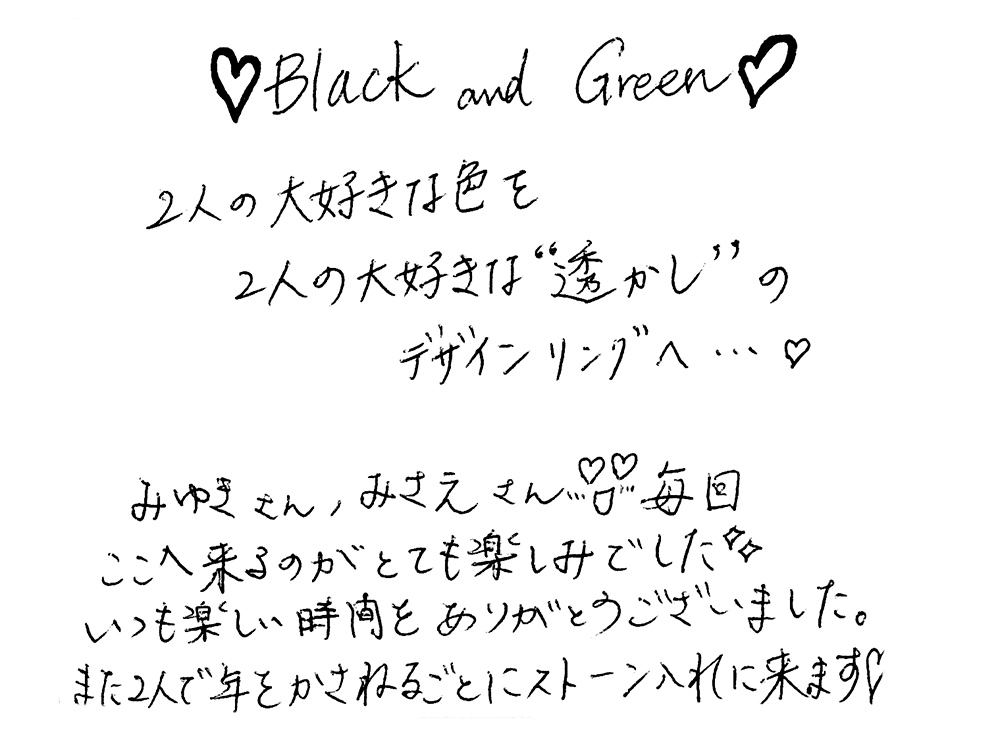 ♡Black and Green♡
2人の大好きな色を
2人の大好きな“透かし”の
デザインリングへ…♡
みゆきさん,みさえさん 毎回
ここへ来るのがとても楽しみでした
いつも楽しい時間をありがとうございました。
また2人で年をかさねるごとにストーン入れに来ます♡